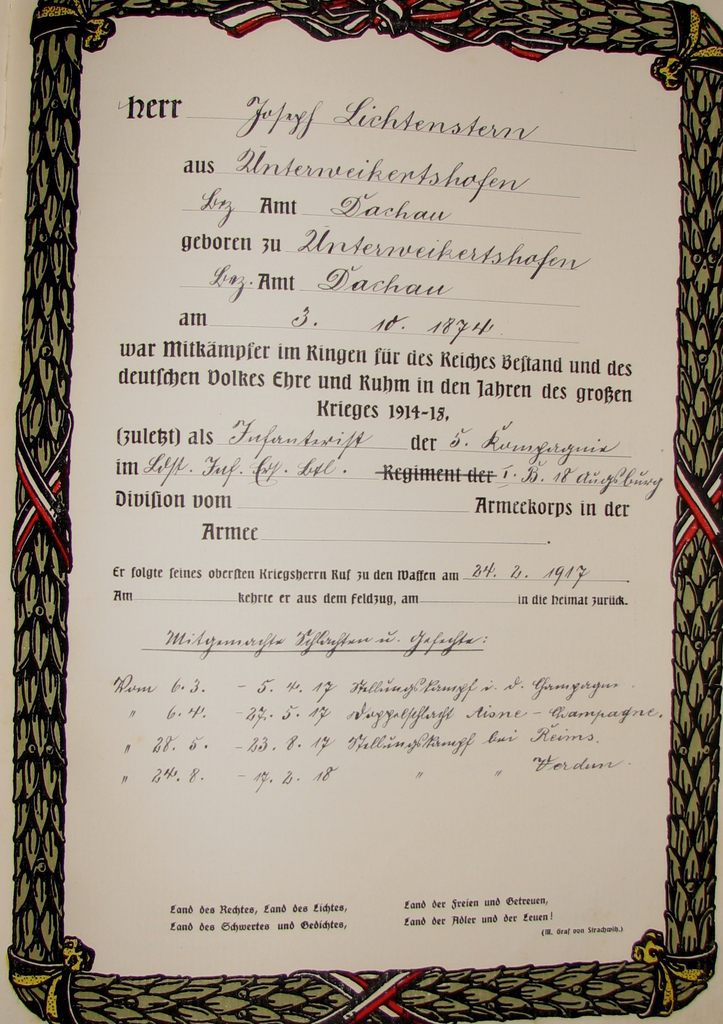 Herr Joseph Lichtenstern
aus Unterweikertshofen
Bez Amt Dachau
geboren zu Unterweikertshofen
Bez. Amt Dachau
am 3. 10. 1874.
war Mitkämpfer im Ringen für des Reiches Bestand und des
deutschen Volkes Ehre und Ruhm in den Jahren des großen
Krieges 1914-15,
(zuletzt) als Infanterist der 5. Kompagnie
im Ldst. Inf. Ers. Btl. Regiment der I. B. 18 Augsburg
Division vom Armeekorps in der
Armee .
Er folgte seines obersten Kriegsherrn Ruf zu den Waffen am 24. 2. 1917.
Am kehrte er aus dem Feldzug, am in die Heimat zurück.
Mitgemachte Schlachten u. Gefechte:
Vom 6. 3. - 5. 4. 17 Stellungskampf i. d. Champagne.
" 6. 4. - 27. 5. 17 Doppelschlacht Aisne - Champagne.
" 28. 5. - 23. 8. 17 Stellungskampf bei Reims.
" 24. 8. - 17. 2. 18 " " Verdun.
Land des Rechtes, Land des Lichtes,
Land des Schwertes und Gedichtes,
Land der Freien und Getreuen,
Land der Adler und der Leuen!
(M. Graf von Strachwitz.)